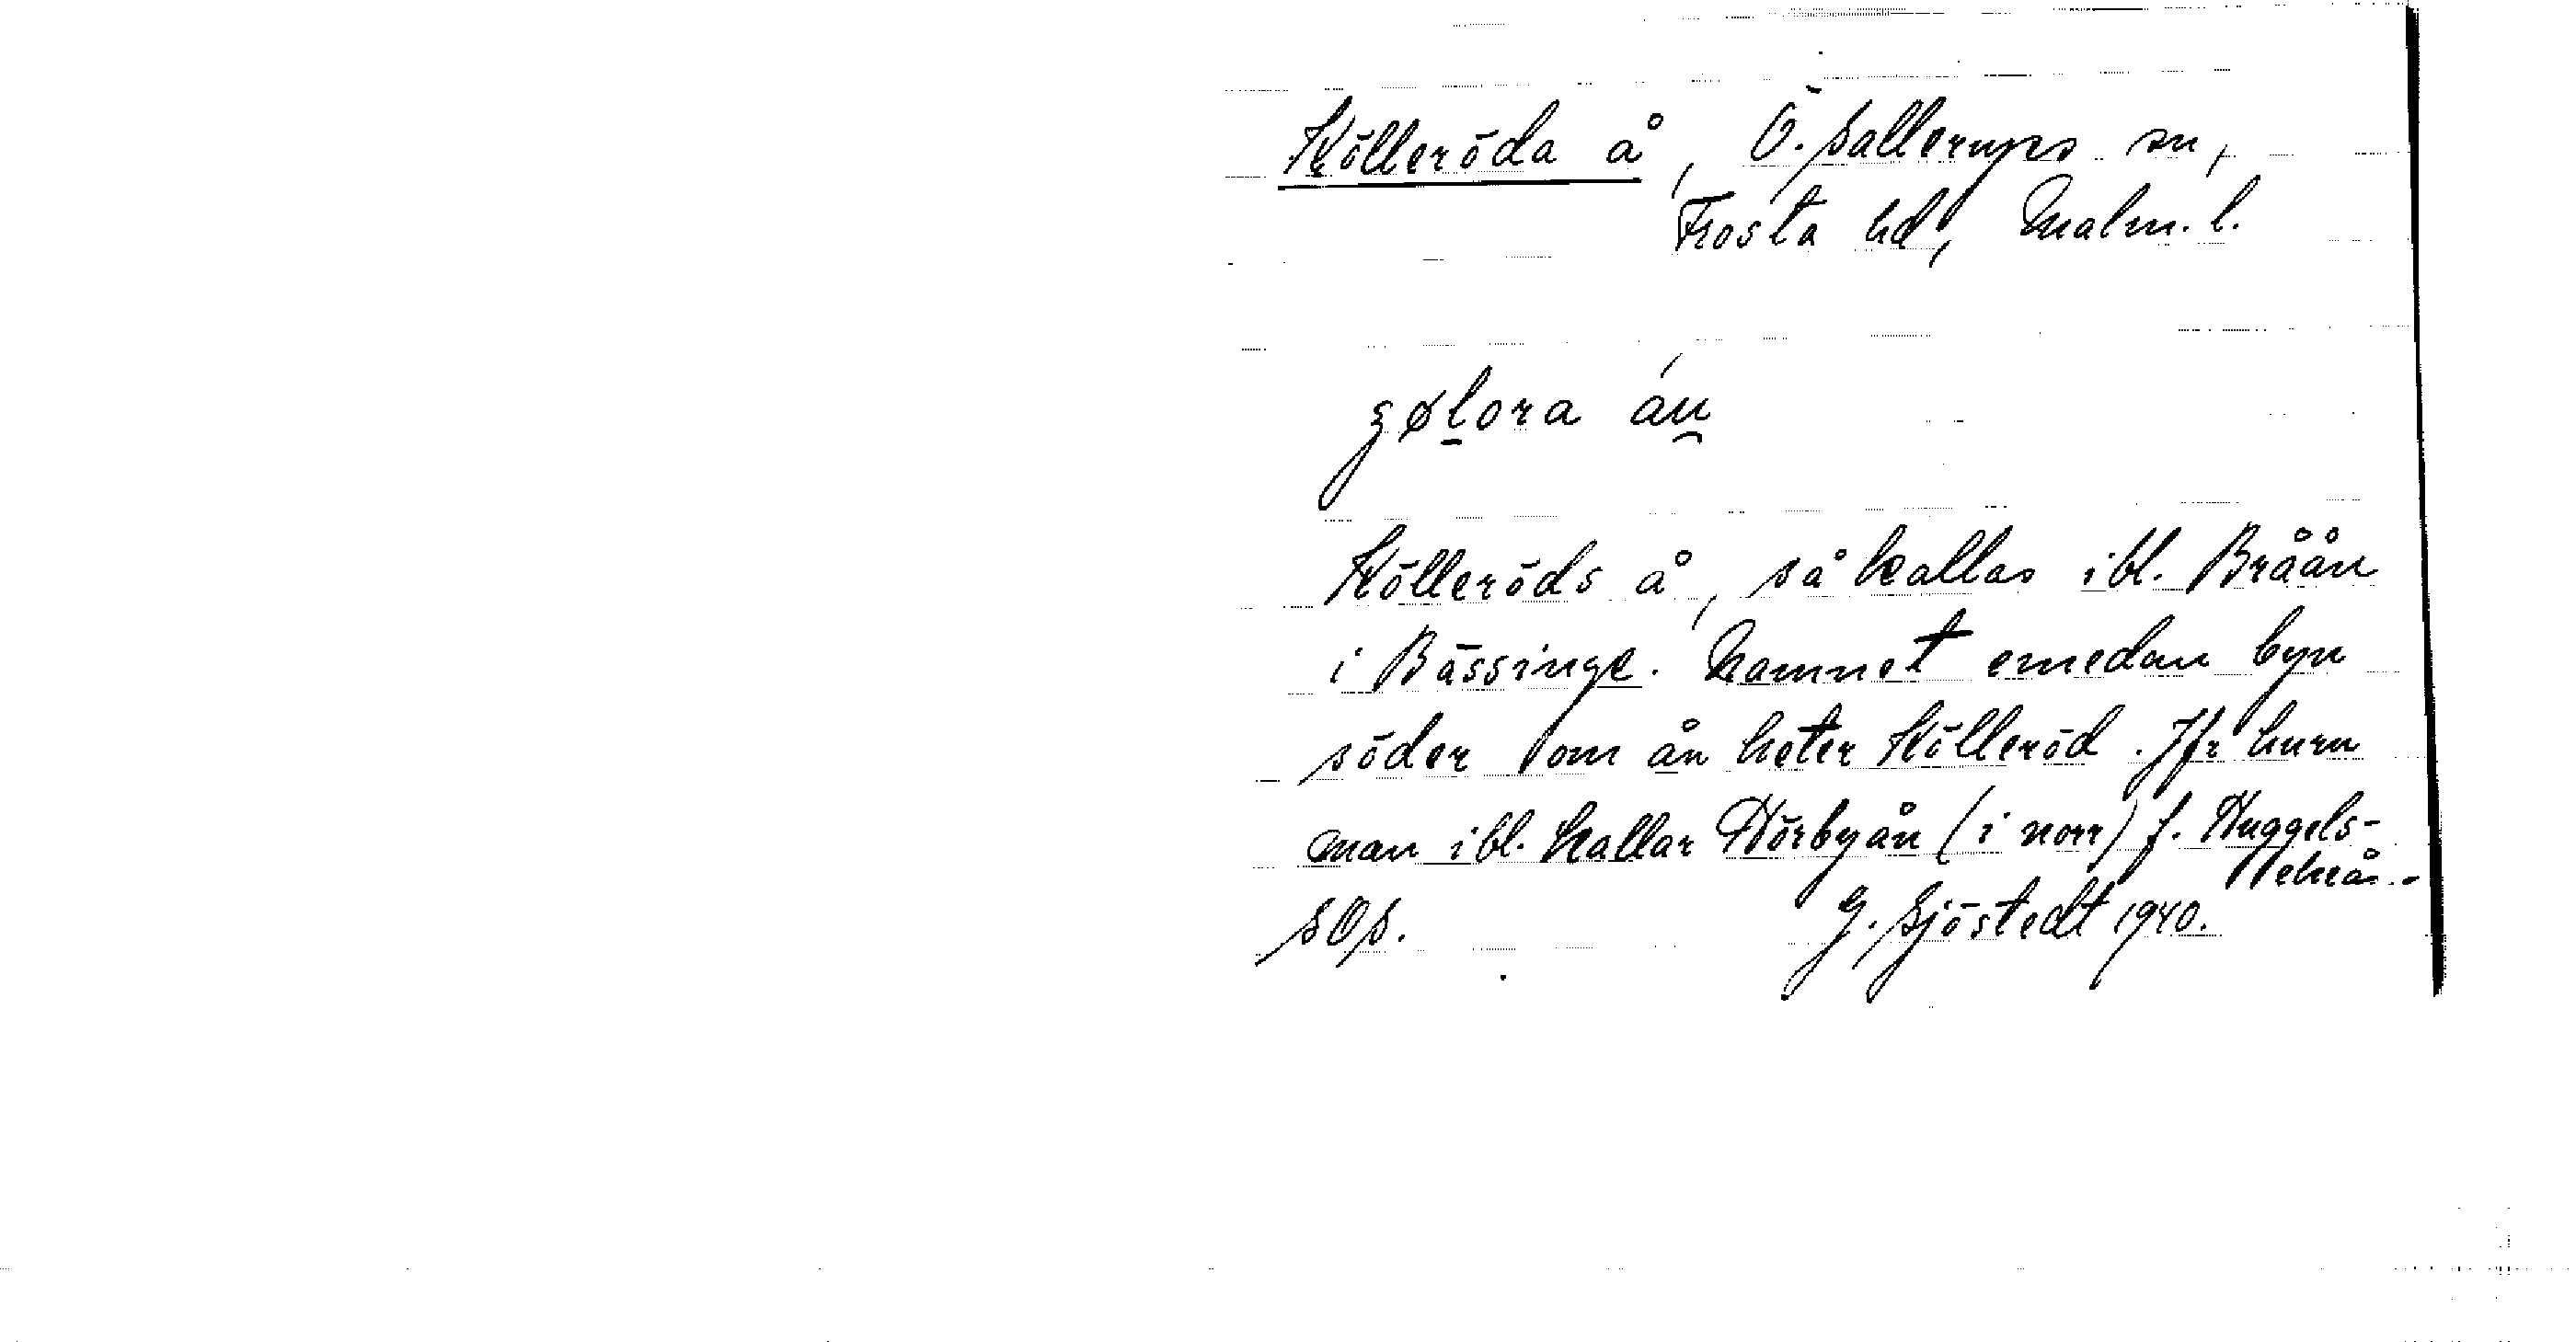 Kölleröda å, Ö. Sallerups sn,
Frosta hd, Malm. l.
ʒølora án
Kölleröds å, så kallas ibl. Bråån
i Bässinge. Namnet emedan byn
söder om ån heter Kölleröd. Jfr huru
man ibl. kallar Hörbyån (i norr) f. Huggels-
SOS. G. Sjöstedt 1940.